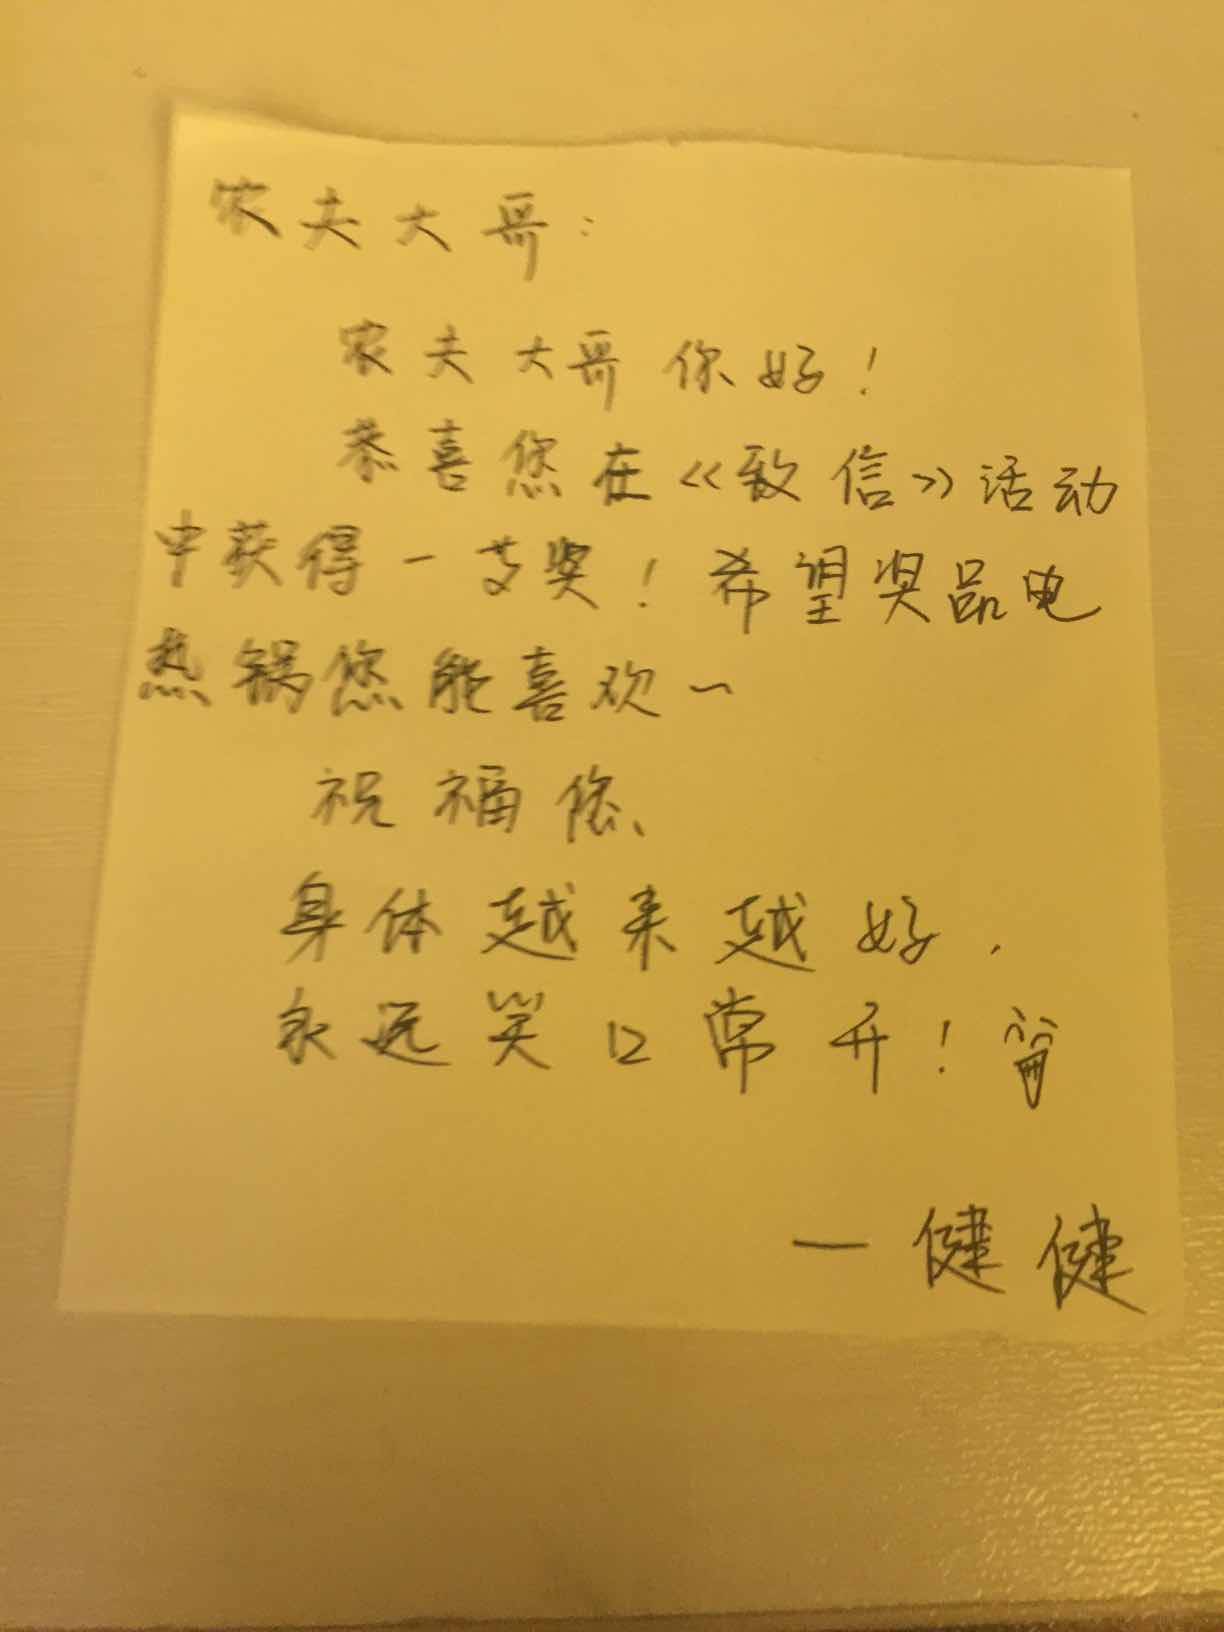 农夫大哥：
农夫大哥你好！
恭喜您在《致信》活动
中获得一支奖！希望奖品电
热锅您能喜欢~
祝福您、
身体越来越好，
永远笑口常开！
—健健